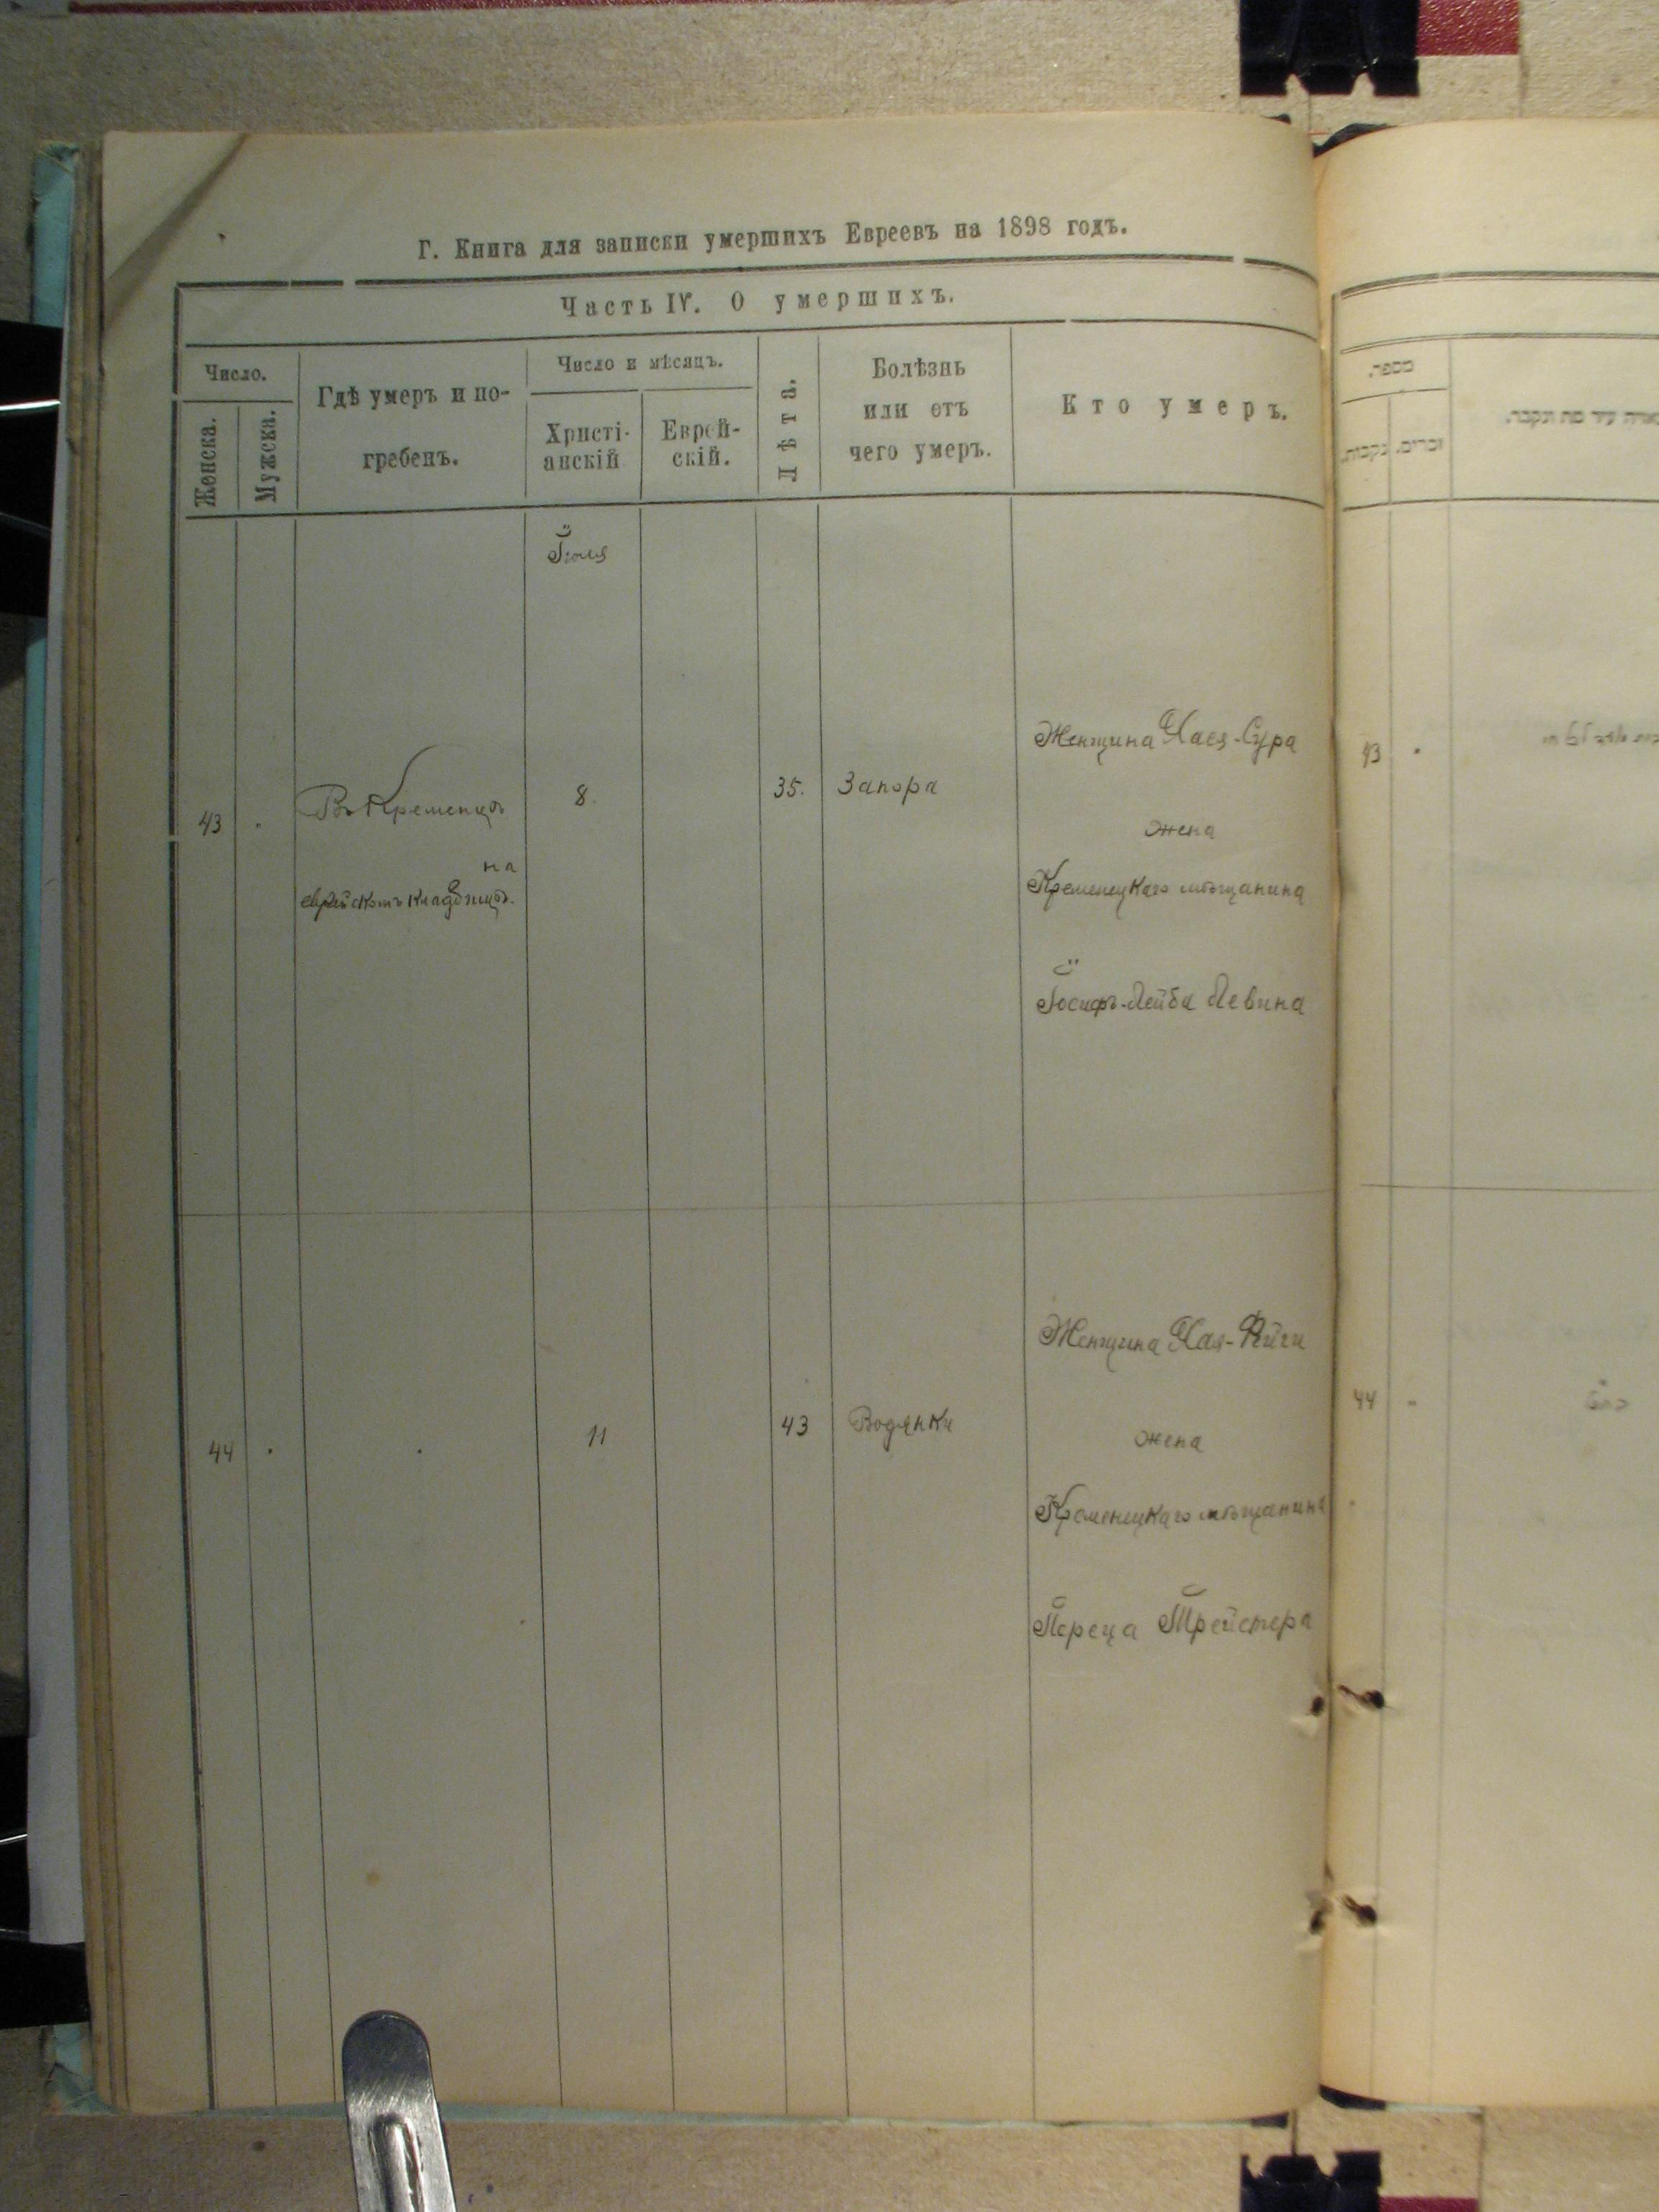 Г. Книга для записки умершихъ Евреевъ на 1898 годъ.
Часть IV. О умершихъ.
Число.
Женска.
Мужска.
Гдѣ умеръ и по-
гребенъ.
Число и мѣсяцъ.
Христі-
анскій
Еврей-
скій.
Лѣта.
Болѣзнь
или отъ
чего умеръ.
Кто умеръ.
מספר.
זכרים.
נקבות.
Іюля
43
Въ Кременцѣ
на
еврейскомъ кладбищѣ.
8.
35.
Запора
Женщина Хася-Сура
жена
Кременецкаго мѣщанина
Іосифъ-Лейба Левина
43
44
11
43
Водянки
Женщина Хая-Фейги
жена
Кременецкаго мѣщанина
Переца Трейстера
44